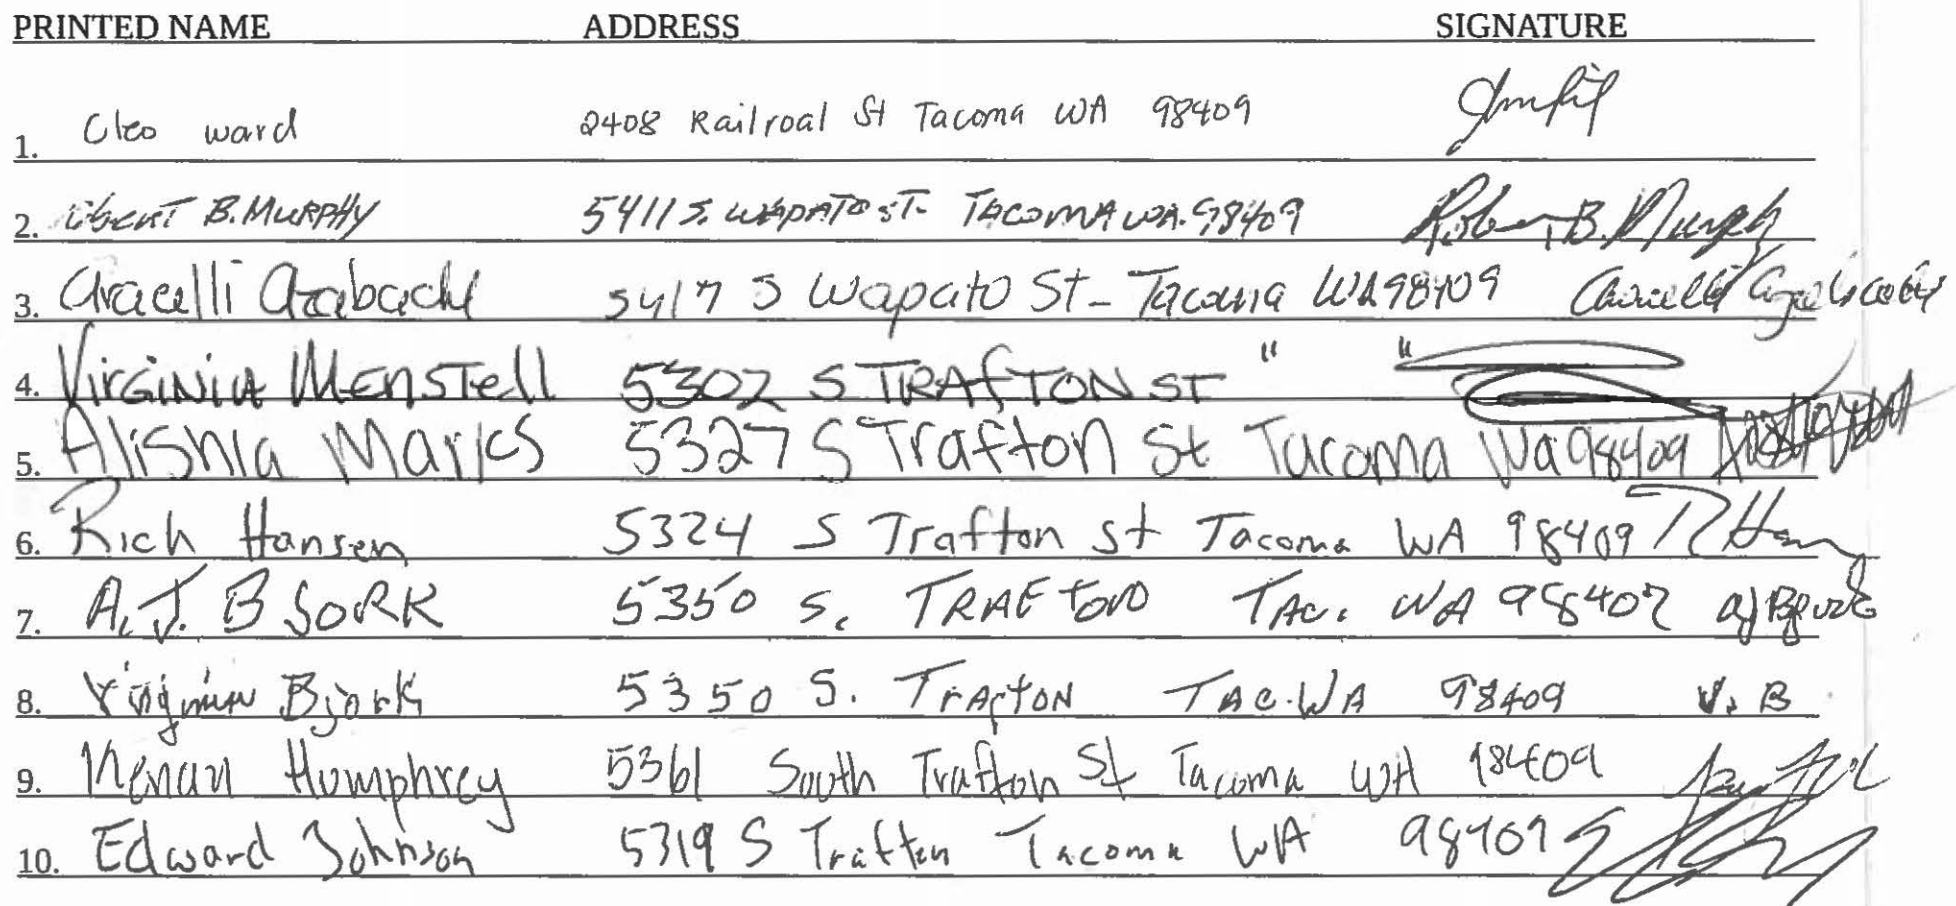 PRINTED NAME ADDRESS SIGNATURE
1. Cleo ward 2408 Railroal St Tacoma WA 98409
2. B. MURPHY 5411 S. WAPATO ST. TACOMA WA. 98409 Robert B. Murphy
3. Aracelli Azabache 5417 S Wapato St - Tacoma WA 98409
4. VirGINIA MENSTell 5302 S TRAfTON ST " "
5. Alishia Marks 5327 S Trafton St Tacoma Wa 98409
6. Rich Hansen 5324 S Trafton st Tacoma WA 98409 R Han
7. A.J. BJORK 5350 S. TRAFTON TAC. WA 98409 aj Bjork
8. Virginia Bjork 5350 S. TrAfTON TAC. WA 98409 V. B
9. Kenan Humphrey 5361 South Trafton St Tacoma WA 98409
10. Edward Johnson 5319 S Trafton Tacoma WA 98409